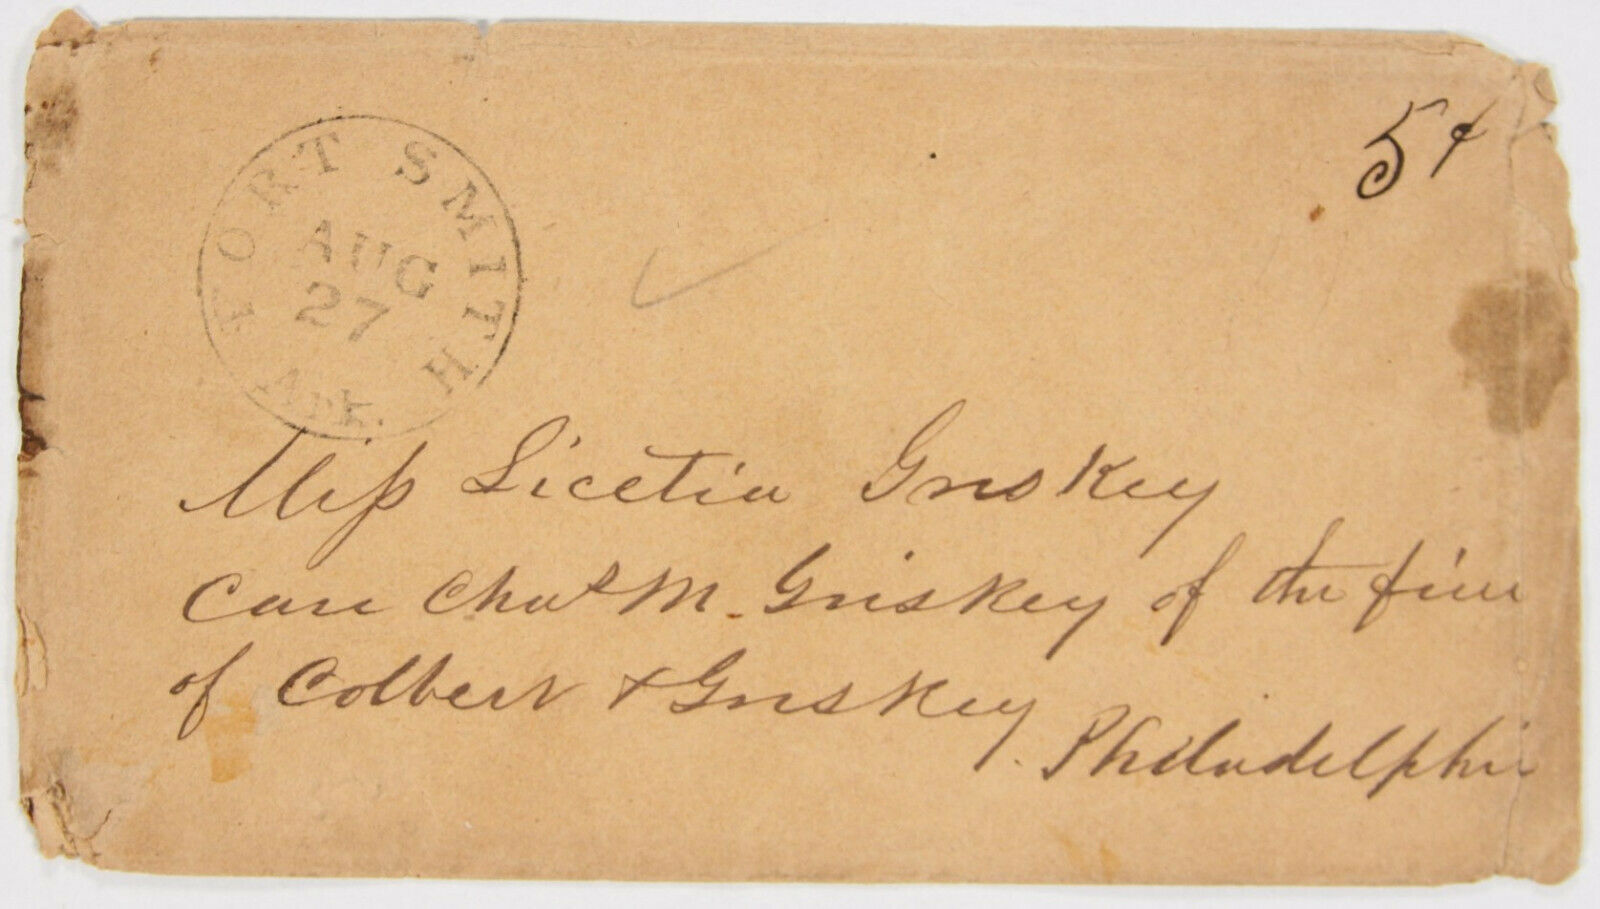 5¢
FORT SMITH
AUG
27
Ark.
Miss Licetia Griskey
Care Chas M. Griskey of the firm
of Colbert & Griskey
Philadelphia